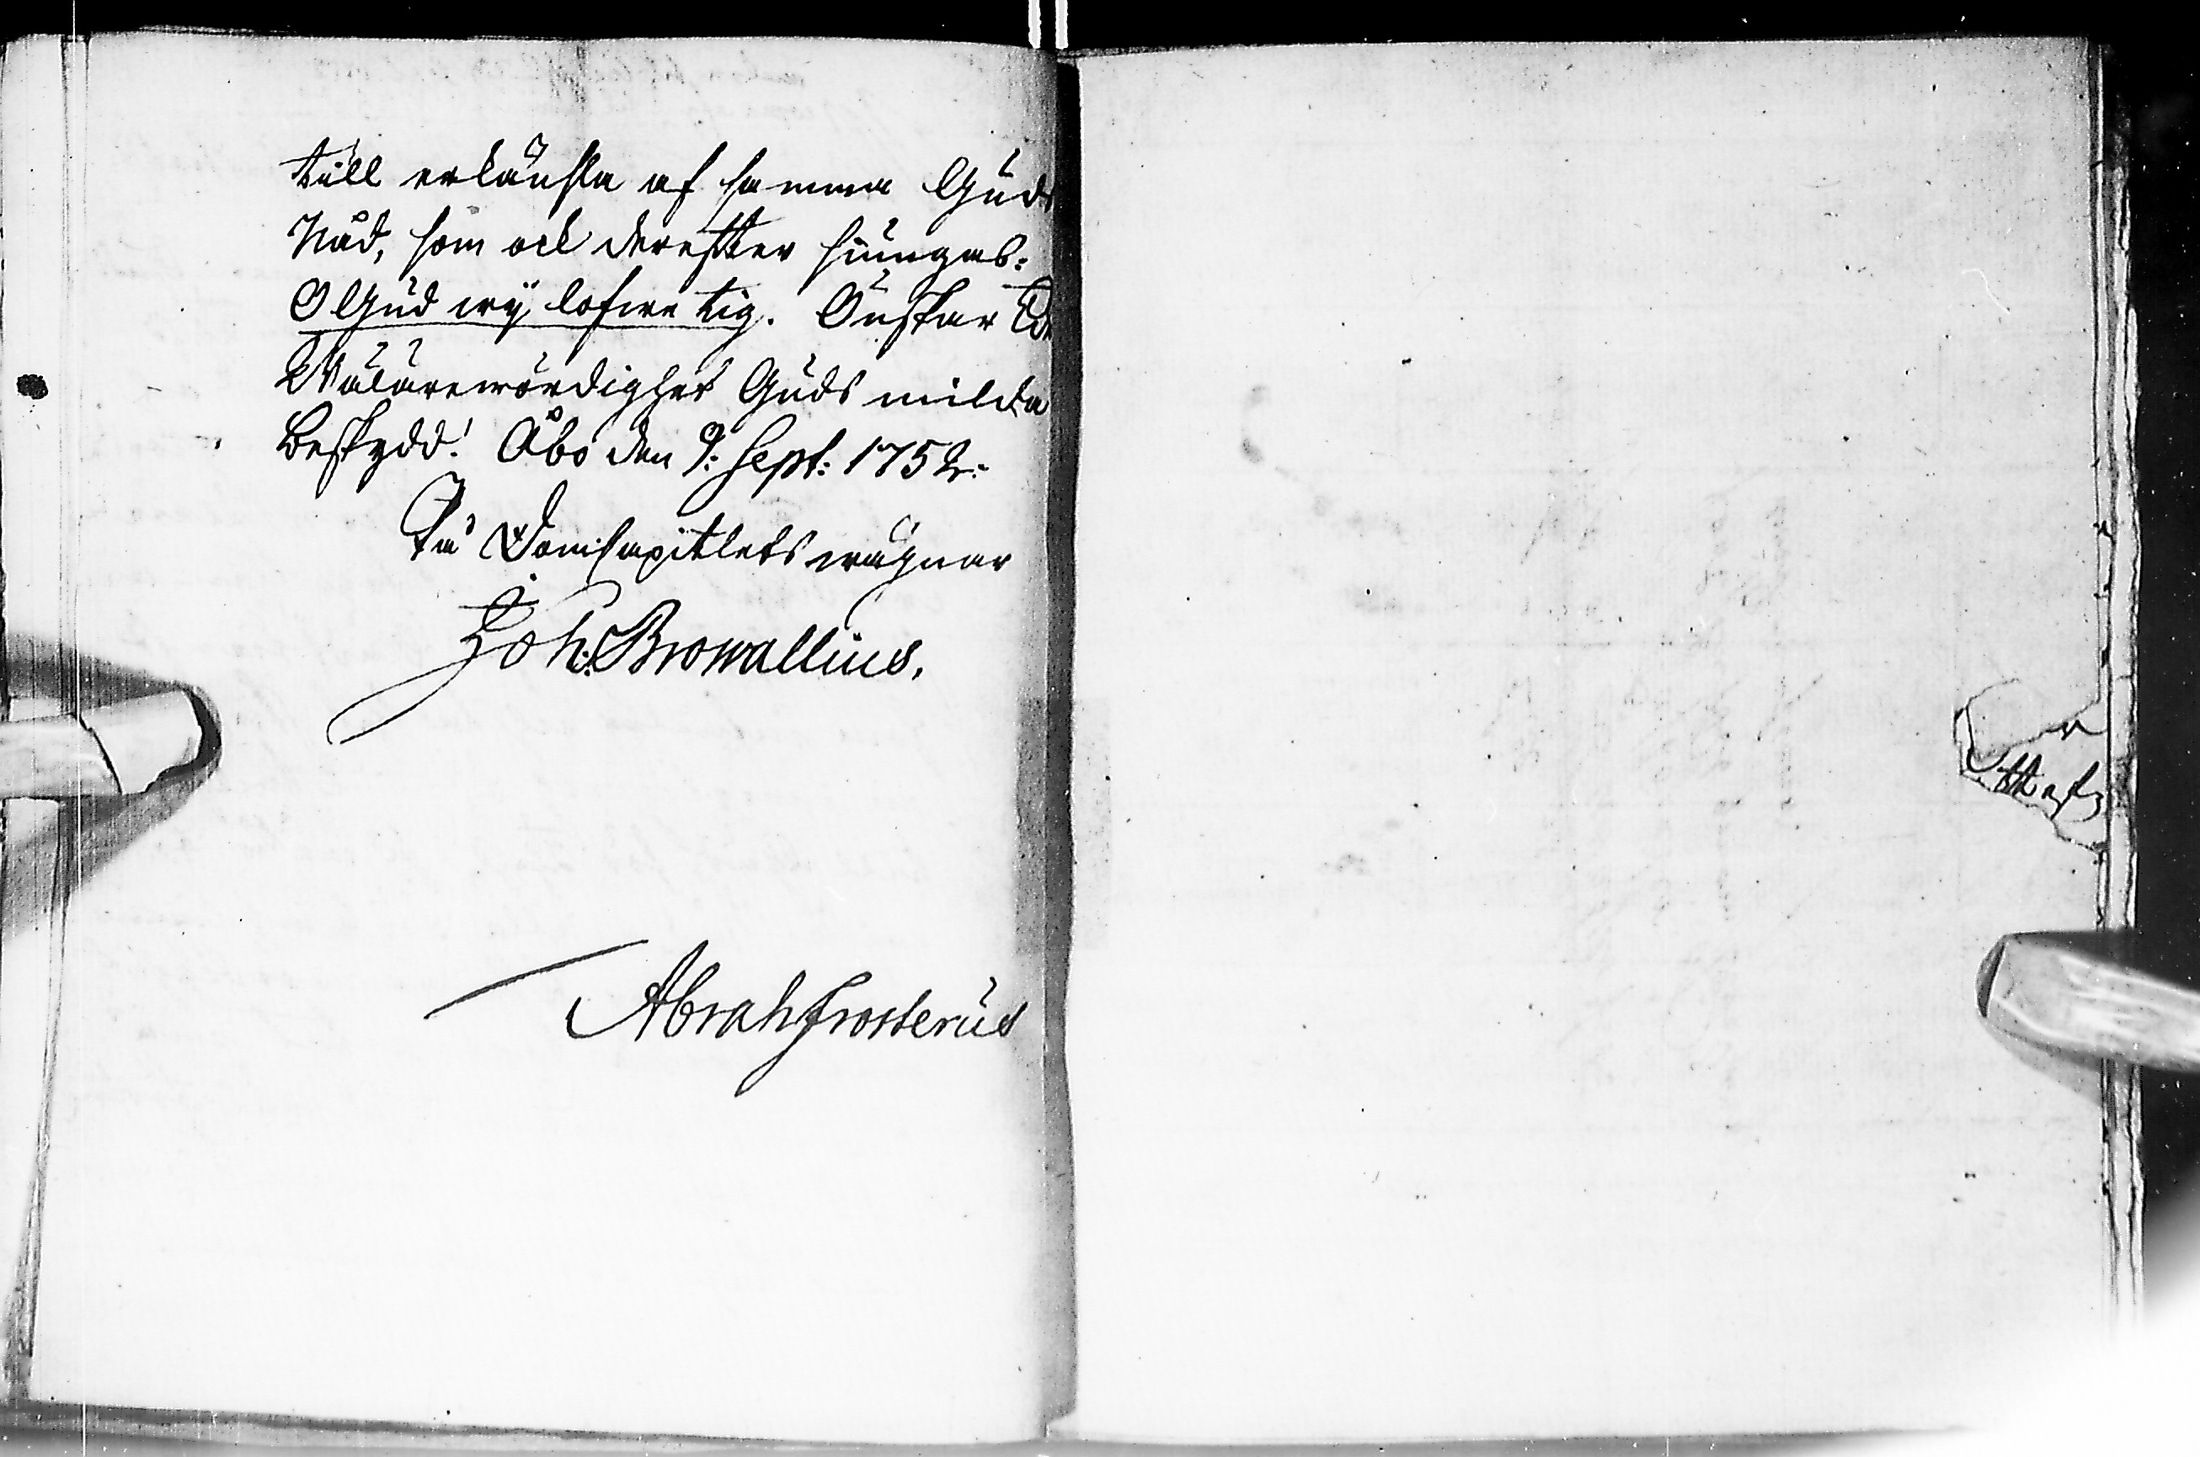 till erkänsla af samma Guds
Nåd, som ock derefter siungas:
O Gud wij lofwe tig. Önskar Ed.
Wälärewördighet Guds milda
beskydd! Åbo den 9: Sept: 1752.
På DomCapitlets wägnar
Joh: Browallius.
Abrah Frosterus